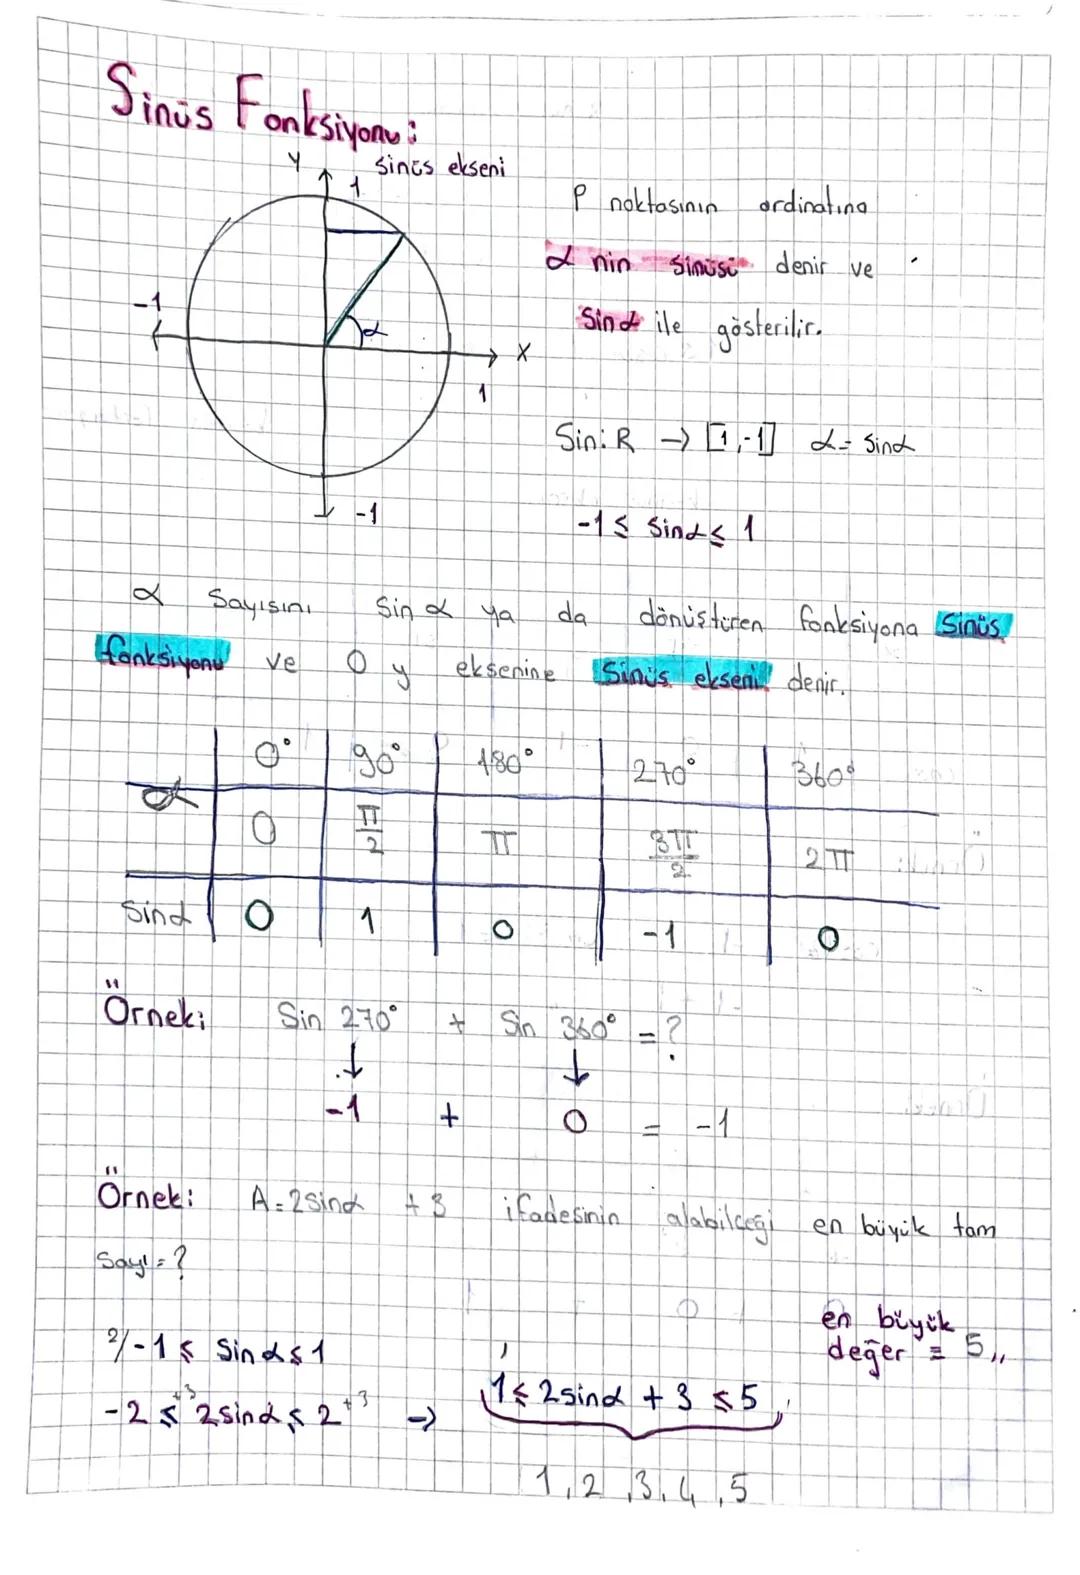 Sinüs Fonksiyonu:
y
sinüs ekseni
1
P noktasının ordinatına
α nin sinüsü denir ve
-1
Sinα ile gösterilir.
α
X
1
Sin: R → [1,-1] α = Sinα
-1
-1 ≤ Sinα ≤ 1
α Sayısını Sin α ya da dönüştüren fonksiyona Sinüs
fonksiyonu ve O y eksenine Sinüs ekseni denir.
α 0° 90° 180° 270° 360°
0 π/2 π 3π/2 2π
Sinα 0 1 0 -1 0
Örnek: Sin 270° + Sin 360° = ?
↓ ↓
-1 + 0 = -1
Örnek: A = 2Sinα + 3 ifadesinin alabilceği en büyük tam
Sayı = ?
en büyük
değer = 5,,
2/ -1 ≤ Sinα ≤ 1
-2 ≤ +3 2sinα ≤ 2 +3 → 1 ≤ 2sinα + 3 ≤ 5
1, 2, 3, 4, 5